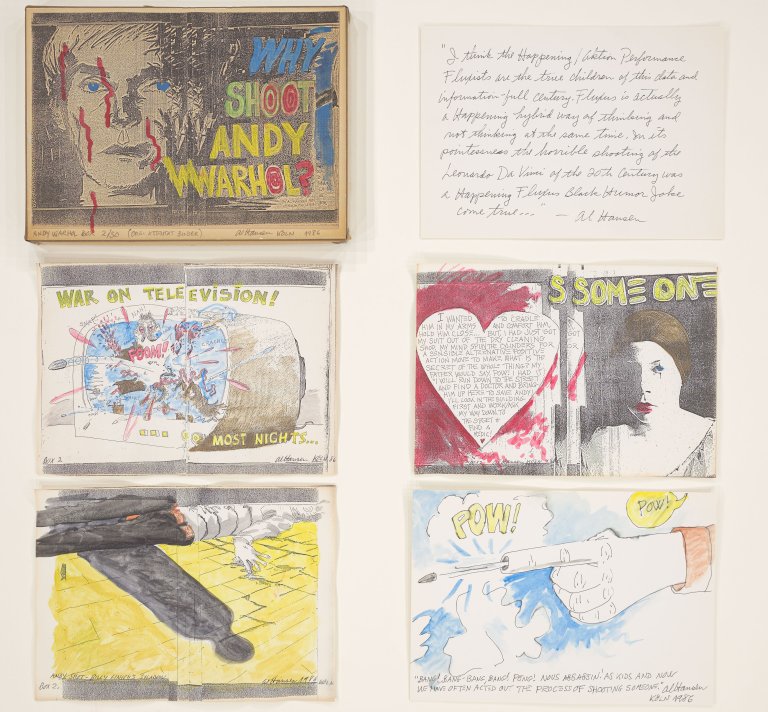 WHY
SHOOT
ANDY
WARHOL?
ANDY WARHOL BOX 2/30
Al Hansen KÖLN 1986
"I think the Happening/Aktion Performance
Fluxists are the true children of this data and
information-full century. Fluxus is actually
a Happening hybrid way of thinking and
not thinking at the same time. In its
pointessness the horrible shooting of the
Leonardo Da Vinci of the 20th Century was
a Happening Fluxus Black Humor Joke
come true..." — Al Hansen
WAR ON TELEEVISION!
POOM!
MOST NIGHTS...
BOX 2
Al Hansen KÖLN 86
S SOME ONE
I WANTED TO CRADLE
HIM IN MY ARMS AND COMFORT HIM,
HOLD HIM CLOSE. BUT, I HAD JUST GOT
MY SUIT OUT OF THE DRY CLEANING
SHOP. MY MIND SPUN THE COUNTERS FOR
A SENSIBLE ALTERNATIVE POSITIVE
ACTION MOVE TO MAKE. WHAT IS THE
SECRET OF THE WHOLE THING? MY
FATHER WOULD SAY. POW! I HAD IT!
"I WILL RUN DOWN TO THE STREET
AND FIND A DOCTOR AND BRING
HIM UP HERE TO SAVE ANDY.
I'LL LOOK IN THE BUILDING
FIRST AND WORK
MY WAY DOWN TO
THE STREET +
FIND A
MEDIC.
POW!
POW!
ANDY SHOT-
BOX 2.
Al Hansen 1986
"BANG! BANG-BANG, BANG! POW!" NOUS ASSASSIN! AS KIDS AND NOW
WE HAVE OFTEN ACTED OUT THE PROCESS OF SHOOTING SOMEONE. Al Hansen
KÖLN 1986